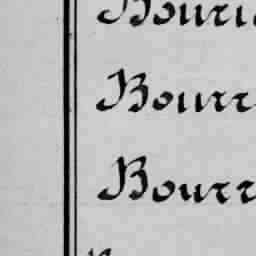 Bouri
Bourr
Bourr